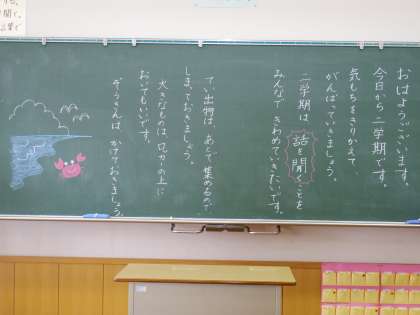 おはようございます。
今日から二学期です。
気もちをきりかえて、
がんばっていきましょう。
二学期は、話を聞くことを
みんなで きわめていきたいです。
てい出物は、あとで集めるので
しまっておきましょう。
大きなものは、ロッカーの上に
おいてもいいです。
ぞうきんは かけておきましょう。